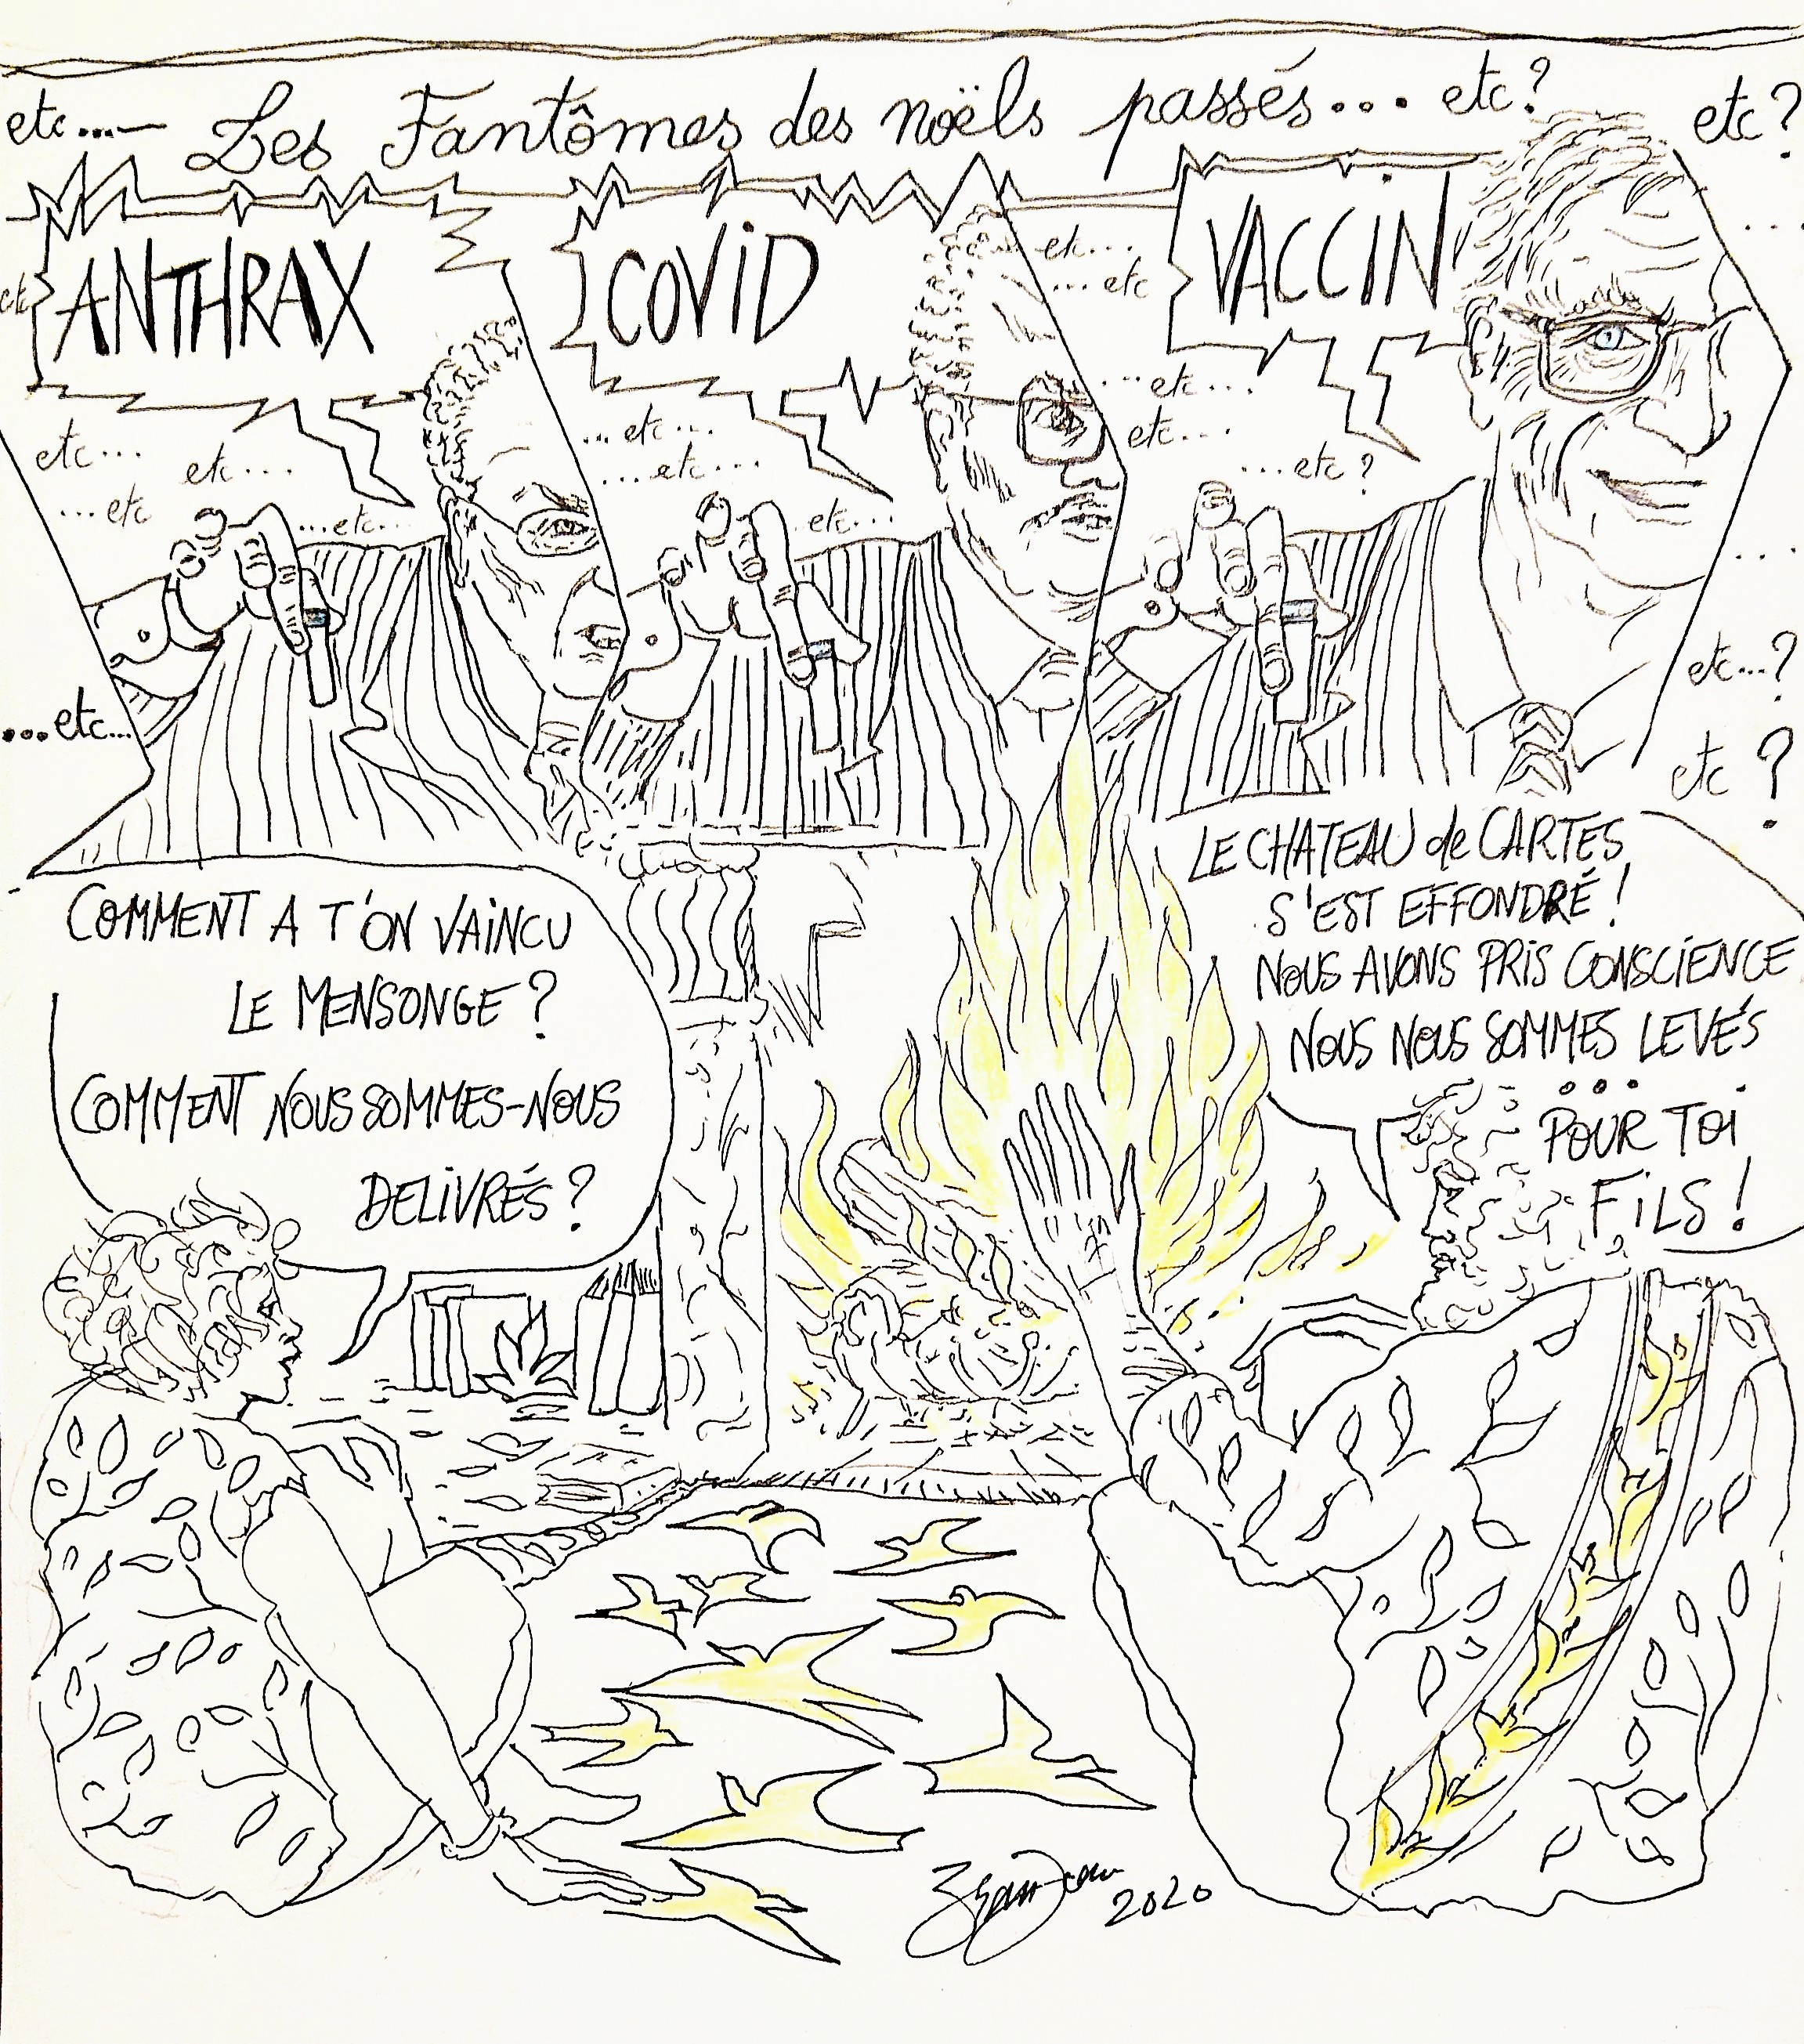 etc...— Les Fantômes des noëls passés... etc? etc?
ANTHRAX
COVID
VACCIN
etc
etc...
etc...
...etc
...etc...
...etc...
...etc...
...etc...
etc...
etc...
...etc
...etc...
etc...
...etc?
...etc...
etc...?
etc?
COMMENT A T'ON VAINCU
LE MENSONGE?
COMMENT NOUS SOMMES-NOUS
DELIVRÉS?
LE CHATEAU de CARTES
S'EST EFFONDRÉ!
NOUS AVONS PRIS CONSCIENCE
NOUS NOUS SOMMES LEVÉS
...
POUR TOI
FILS!
2020